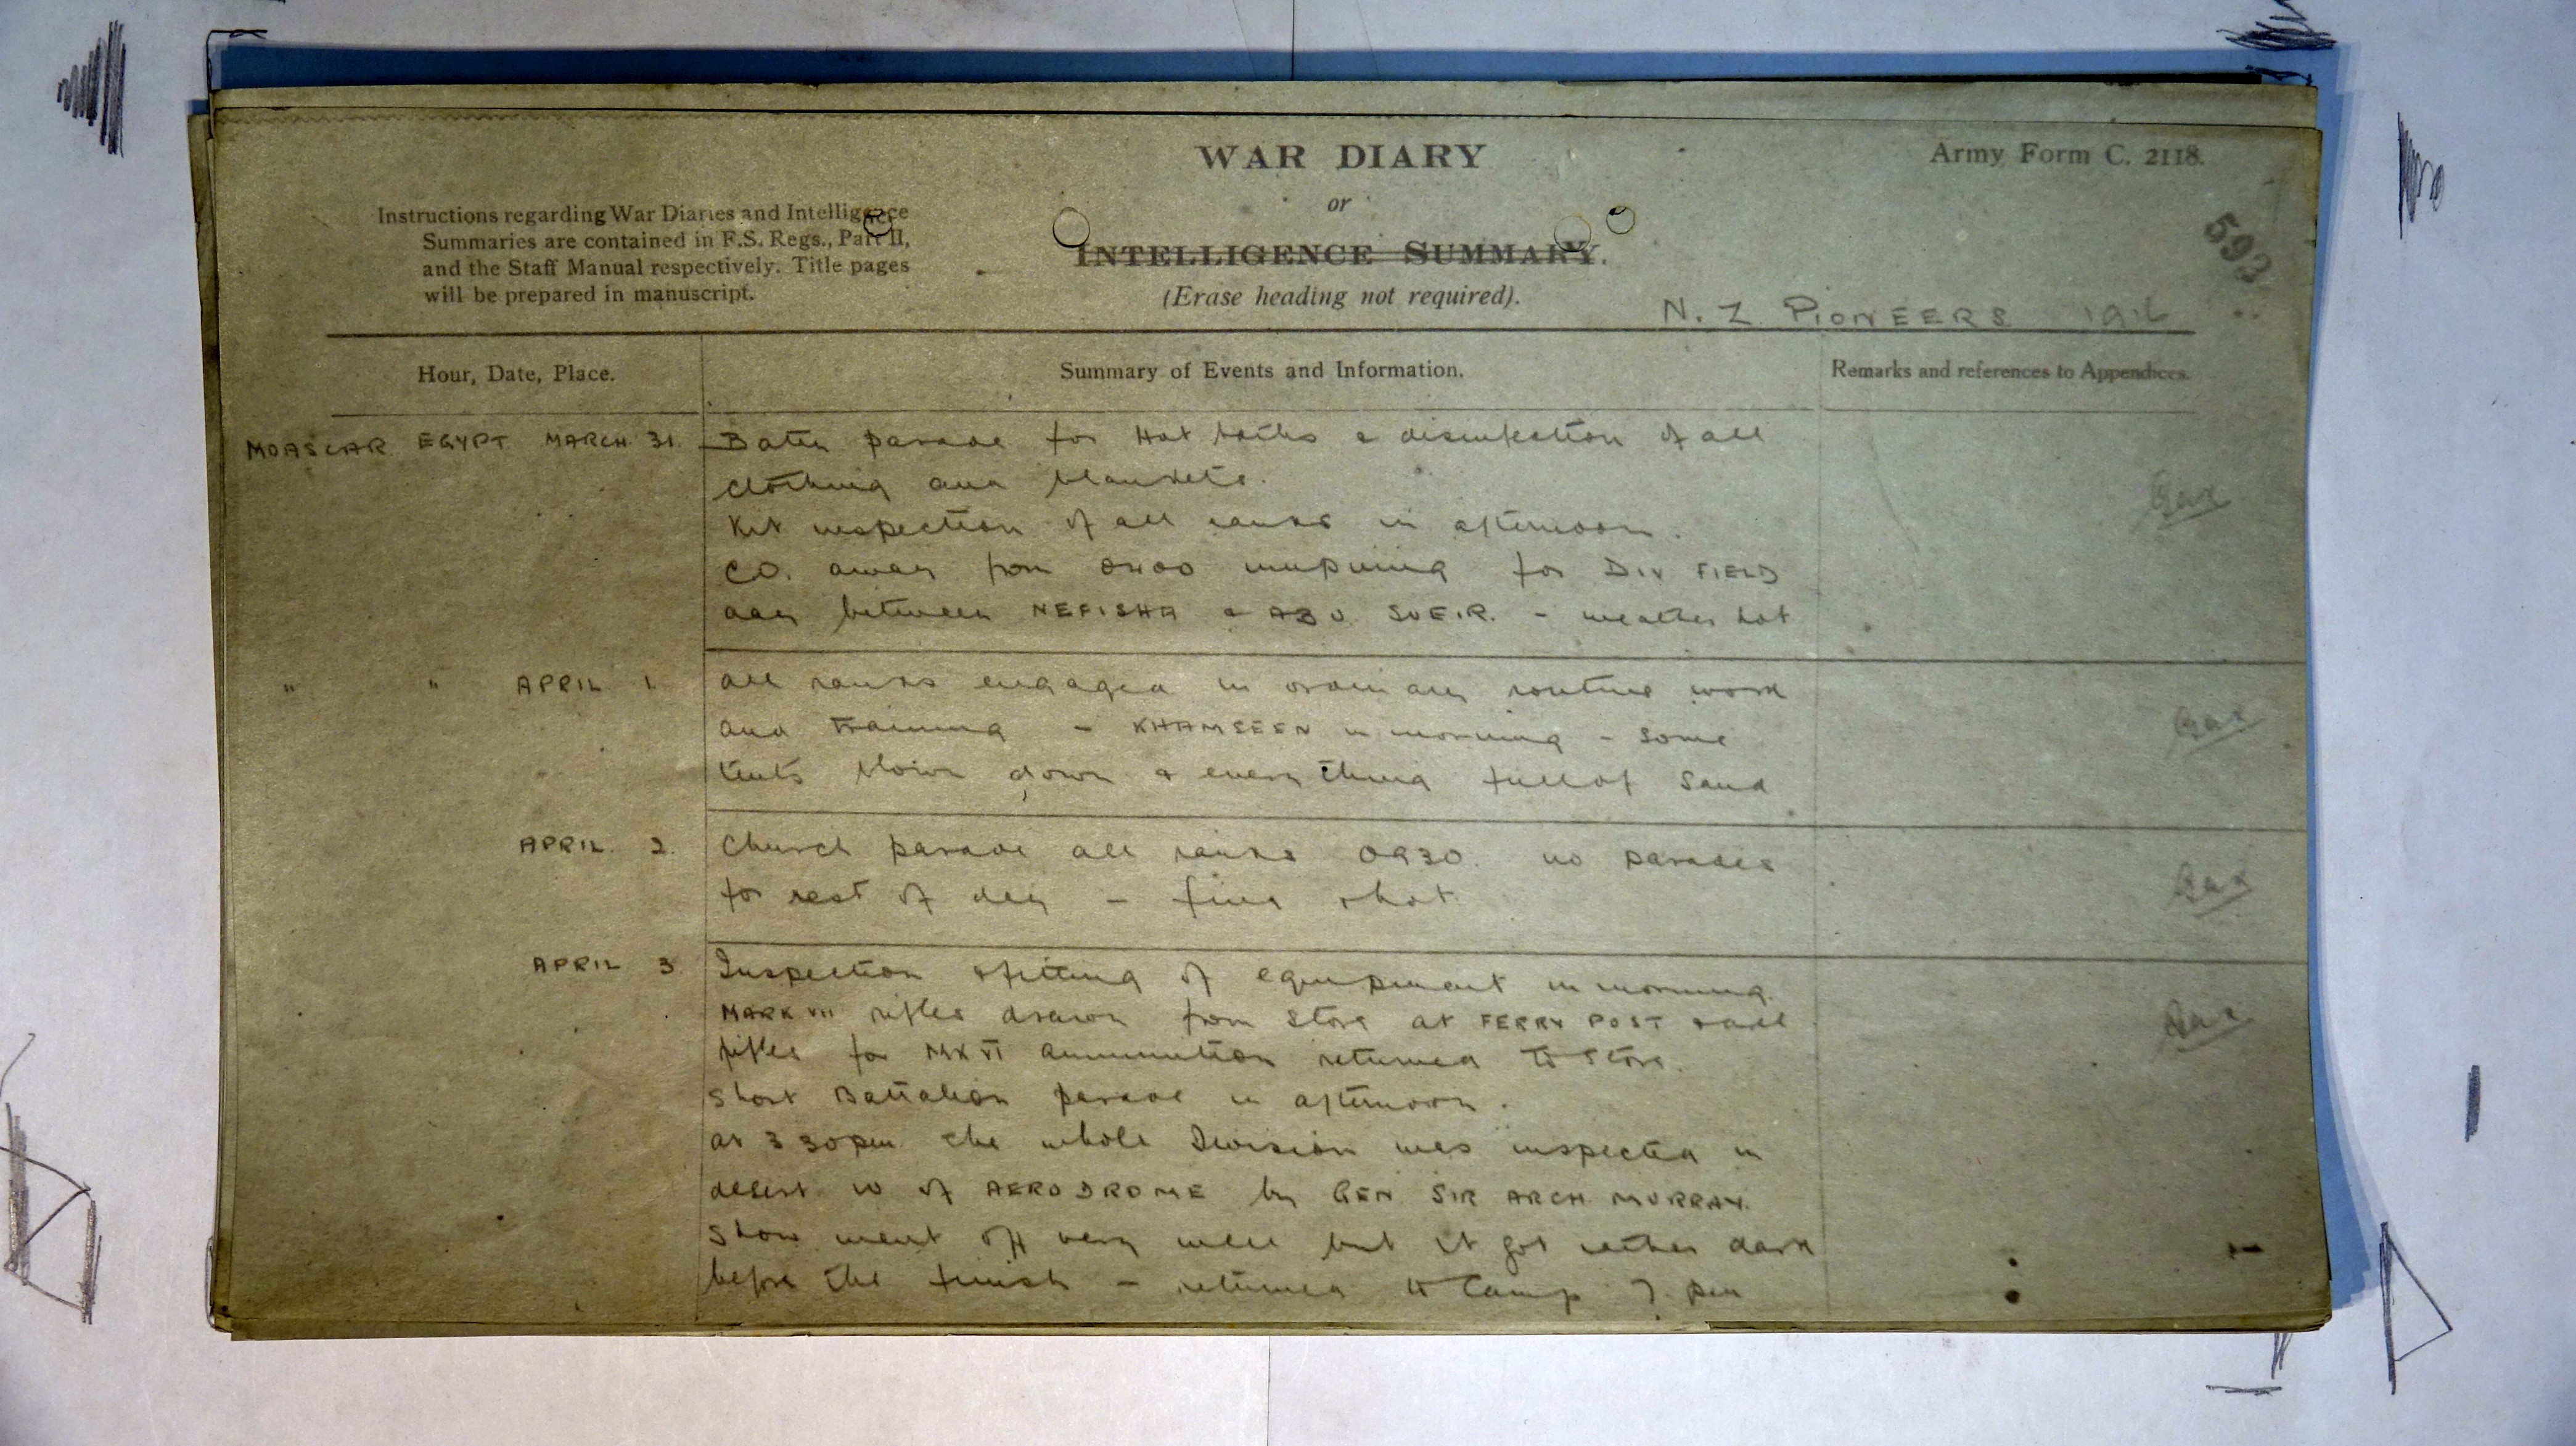 WAR DIARY
or
INTELLIGENCE SUMMARY.
(Erase heading not required).
Army Form C. 2118.
Instructions regarding War Diaries and Intelligence
Summaries are contained in F.S. Regs., Part II,
and the Staff Manual respectively. Title pages
will be prepared in manuscript.
593
N. Z. PIONEERS 1916
Hour, Date, Place.
Summary of Events and Information.
Remarks and references to Appendices.
MOASCAR EGYPT MARCH 31.
Batn parade for Hot baths & disinfection of all
clothing and blankets.
Kit inspection of all ranks in afternoon.
CO. away from 0400 umpiring for DIV FIELD
day between NEFISHA & ABU SUEIR. - weather hot
" " APRIL 1.
all ranks engaged in ordinary routine work
and training - KHAMSEEN in morning - some
tents blown down & everything full of sand
APRIL 2.
Church parade all ranks 0930. no parades
for rest of day - fine & hot
APRIL 3
Inspection & fitting of equipment in morning.
MARK VII rifles drawn from store at FERRY POST & all
rifles for MK VI ammunition returned to store.
Short Battalion parade in afternoon.
at 3 30 pm the whole Division was inspected in
desert W of AERODROME by GEN SIR ARCH MURRAY.
Show went off very well but it got rather dark
before the finish - returned to Camp 7 pm